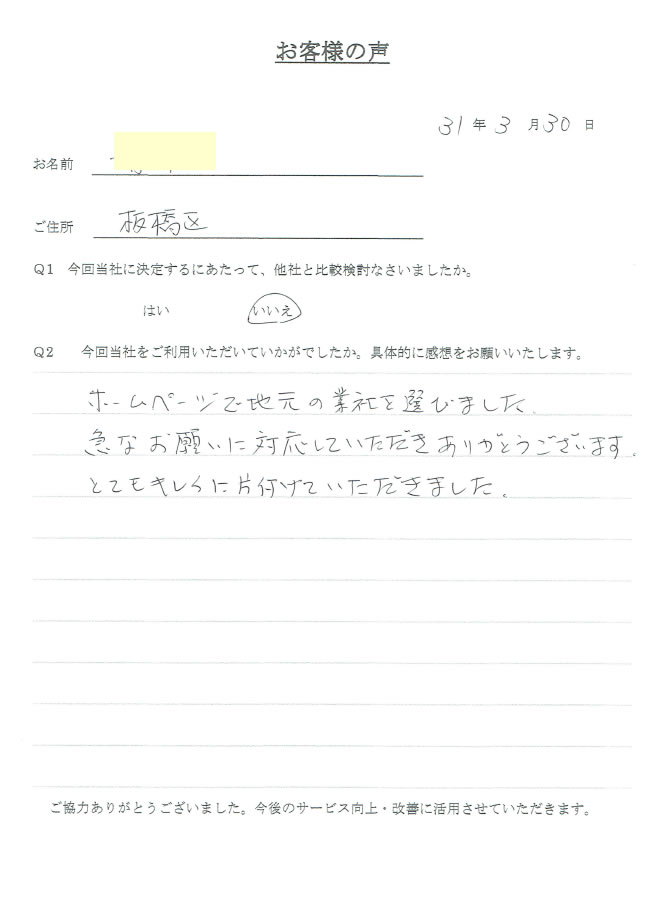 お客様の声
31年3月30日
お名前
ご住所 板橋区
Q1 今回当社に決定するにあたって、他社と比較検討なさいましたか。
はい いいえ
Q2 今回当社をご利用いただいていかがでしたか。具体的に感想をお願いいたします。
ホームページで地元の業社を選びました。
急なお願いに対応していただきありがとうございます。
とてもキレイに片付けていただきました。
ご協力ありがとうございました。今後のサービス向上・改善に活用させていただきます。